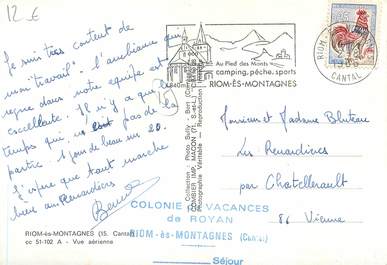 12 €
Je suis très content de
mon "travail". L'ambiance qui
règne dans notre équipe est
excellente. Il n'y a que le
temps qui ne soit pas de la
partie. 1 jour de beau sur 20.
J'espère que tout marche
bien aux Renardières
Au Pied des Monts
camping, pêche, sports
RIOM-ÈS-MONTAGNES
840m
RIOM-ÈS-
CANTAL
Monsieur et Madame Bluteau
Les Renardières
par Chatellerault
86 Vienne
COLONIE VACANCES
de ROYAN
RIOM-ès-MONTAGNES (Cantal)
Séjour
RIOM-ès-MONTAGNES (15. Cantal)
cc 51-102 A - Vue aérienne
COMBIER IMP. MACON (71. S.-et-L.)
Photographie Véritable - Reproduction